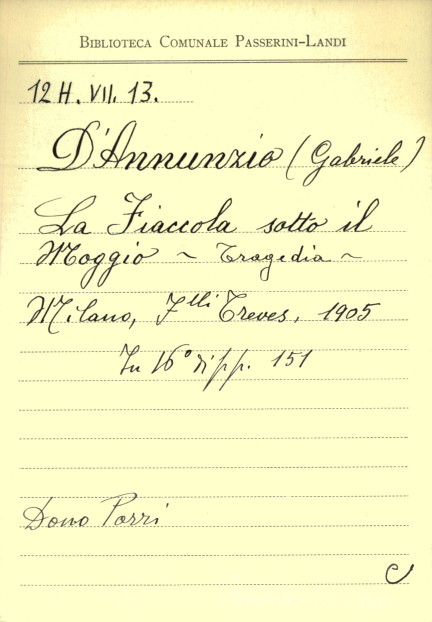 BIBLIOTECA COMUNALE PASSERINI-LANDI
12 H. VII. 13.
D'Annunzio (Gabriele)
La Fiaccola sotto il
Moggio ~ Tragedia ~
Milano, Flli Treves, 1905
In 16° di pp. 151
Dono Porri
C